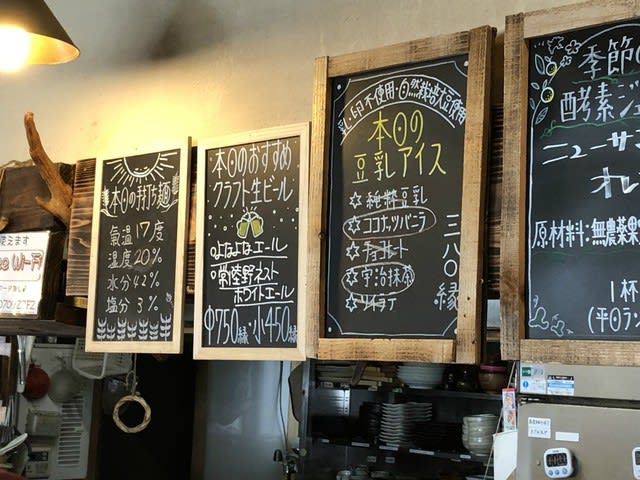 使えます
本日の手打ち麺
気温 17度
湿度 20%
水分 42%
塩分 3%
本日のおすすめ
クラフト生ビール
よなよなエール
常陸野ネスト
ホワイトエール
中750縁・小450縁
乳・卵不使用・自然栽培大豆使用
本日の
豆乳アイス
☆純粋豆乳
☆ココナッツバニラ
☆チョコレート
☆宇治抹茶
☆ソイラテ
三八〇縁
季節の
酵素ジ
ニューサ
オレ
原材料:無農薬
1杯
(平日ラン